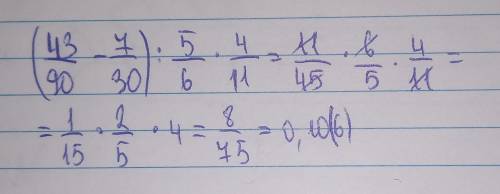 (43/90 − 7/30) : 5/6 · 4/11 = 11/45 · 6/5 · 4/11 =
= 1/15 · 2/5 · 4 = 8/75 = 0,10(6)